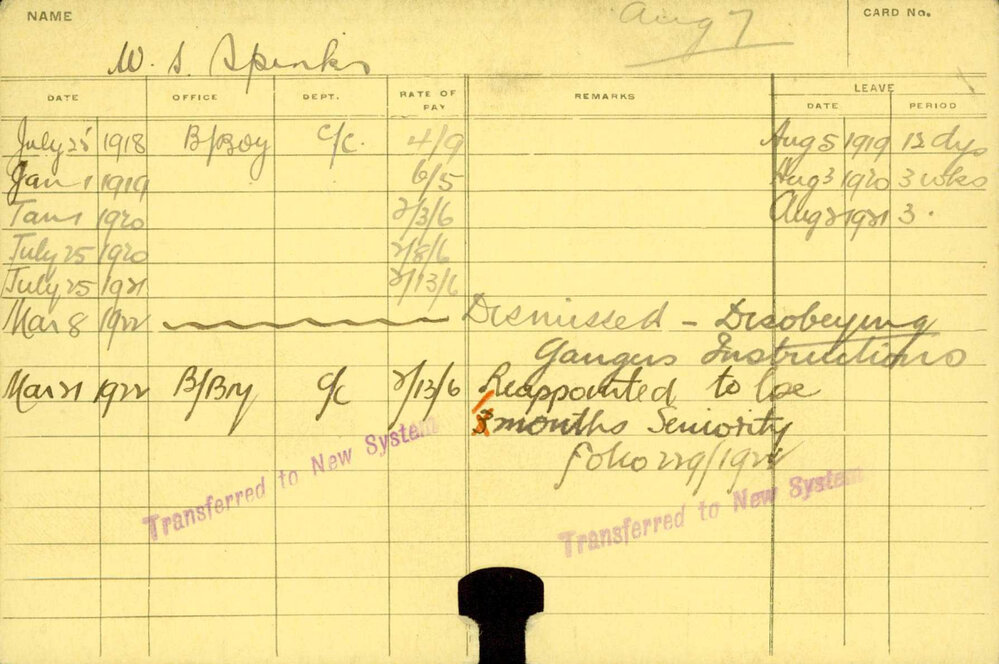 NAME
Aug 7
CARD No.
W. S. Spinks
DATE OFFICE DEPT. RATE OF PAY REMARKS LEAVE
DATE PERIOD
July 25 1918 B/Boy C/C. 4/9 Aug 5 1919 12 dys
Jan 1 1919 6/5 Aug 3 1920 3 wks
Jan 1 1920 2/3/6 Aug 2 1921 3 .
July 25 1920 2/8/6
July 25 1921 2/13/6
Mar 8 1922 Dismissed - Disobeying
Gangers Instructions
Mar 21 1922 B/Boy C/C 2/13/6 Reappointed to lose
months Seniority
folio 229/1922
Transferred to New System
Transferred to New System